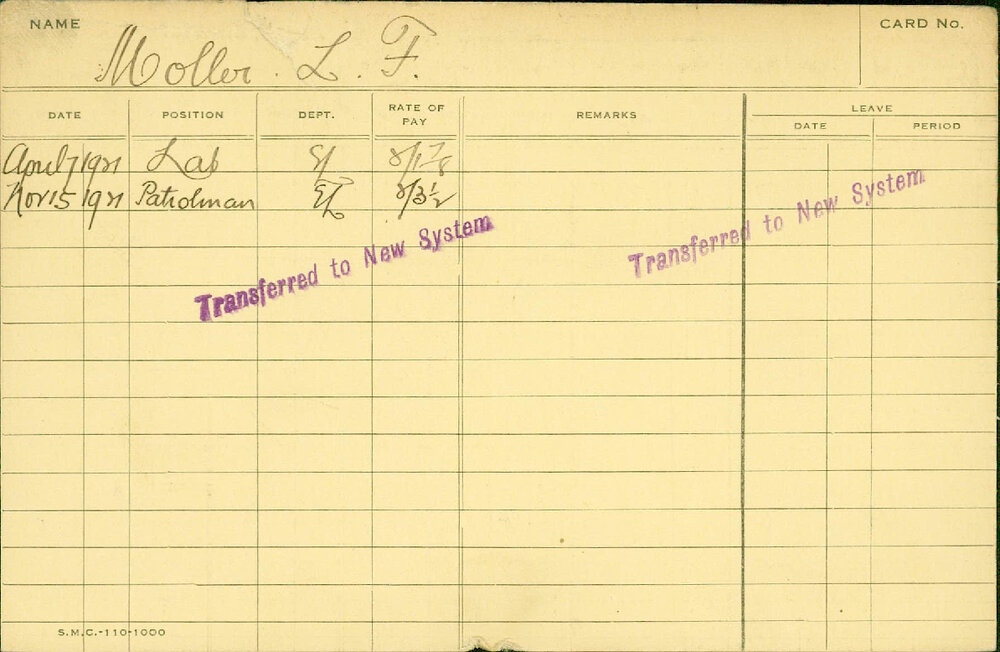 NAME
CARD No.
Moller. L. F.
DATE POSITION DEPT. RATE OF PAY REMARKS LEAVE
DATE PERIOD
April 7 1921 Lab
Nov 15 1921 Patrolman 2/3½
Transferred to New System
Transferred to New System
S.M.C.-110-1000